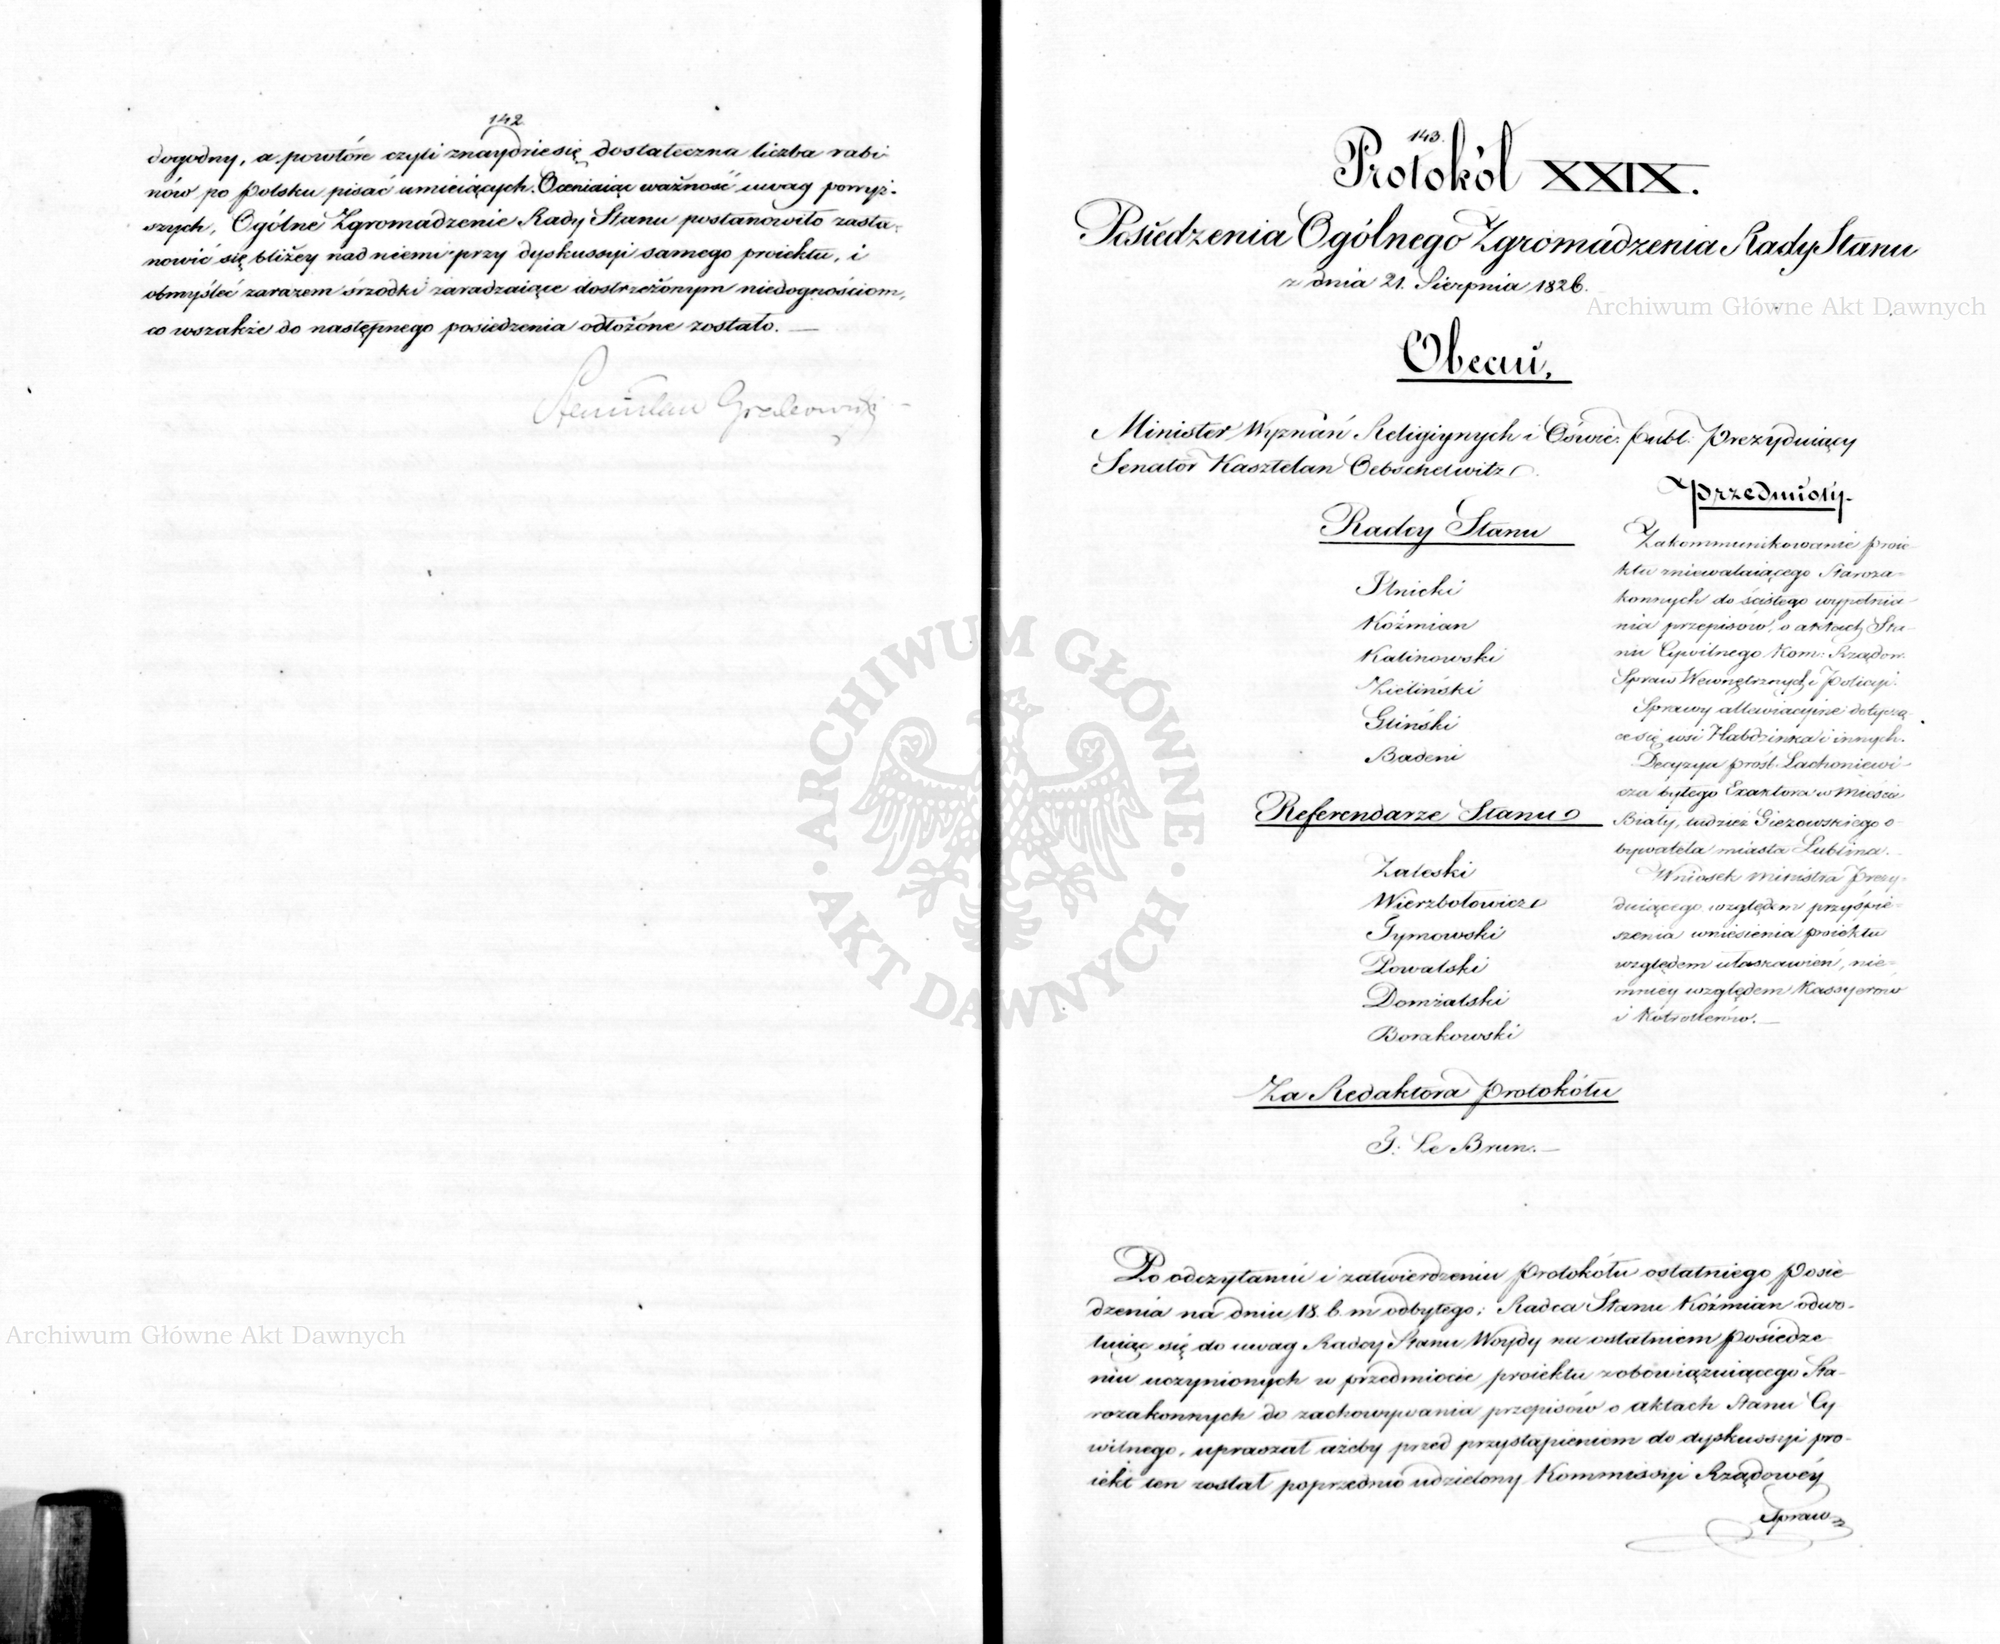 142.
dogodny, a powtóre czyli znaydzie się dostateczna liczba rabi
nów po polsku pisać umieiących. Oceniaiąc ważność uwag powyż-
szych, Ogólne Zgromadzenie Rady Stanu postanowiło zasta-
nowić się bliżey nad niemi przy dyskussyi samego proiektu, i
obmyśleć zarazem śrzodki zaradzaiące dostrzeżonym niedogodnościom,
co wszakże do następnego posiedzenia odłożone zostało. —
Stanisław Grabowski
143.
Protokół XXIX.
Posiedzenia Ogólnego Zgromadzenia Rady Stanu
z dnia 21. Sierpnia 1826.
Obecni,
Minister Wyznań Religiynych i Oświe: publ: Prezyduiący
Senator Kasztelan Oebschelwitz
Radcy Stanu
Ilnicki
Koźmian
Kalinowski
Zieliński
Gliński
Badeni
Referendarze Stanu
Zaleski
Wierzbołowicz
Tymowski
Powalski
Domżalski
Borakowski
Za Redaktora Protokółu
J: Le Brun. —
Przedmioty.
Zakommunikowanie proie-
ktu zniewalaiącego Staroza-
konnych do ścisłego wypełnia-
nia przepisów, o aktach Sta-
nu Cywilnego Kom: Rządow.
Spraw Wewnętrznych i Policyi.
Sprawy allewiacyine dotyczą-
ce się wsi Habdzinka i innych.
Decyzya próśb Lachoniewi-
cza byłego Exaktora w Mieście
Biały, tudzież Giezowskiego o-
bywatela miasta Lublina.
Wniosek Ministra Prezy-
duiącego względem przyśpie-
szenia wniesienia proiektu
względem ułaskawień, nie-
mniey względem Kassyerow
i Kotrollerów. —
Po odczytaniu i zatwierdzeniu Protokółu ostatniego Posie-
dzenia na dniu 18. b. m odbytego; Radca Stanu Koźmian odwo-
łuiąc się do uwag Radcy Stanu Woydy na ostatniem Posiedze-
niu uczynionych w przedmiocie proiektu zobowiązuiącego Sta-
rozakonnych do zachowywania przepisów o aktach Stanu Cy
wilnego, upraszał ażeby przed przystąpieniem do dyskussyi pro-
iekt ten został poprzednio udzielony Kommissyi Rządowéy
Spraw
Archiwum Główne Akt Dawnych
Archiwum Główne Akt Dawnych
ARCHIWUM GŁÓWNE AKT DAWNYCH